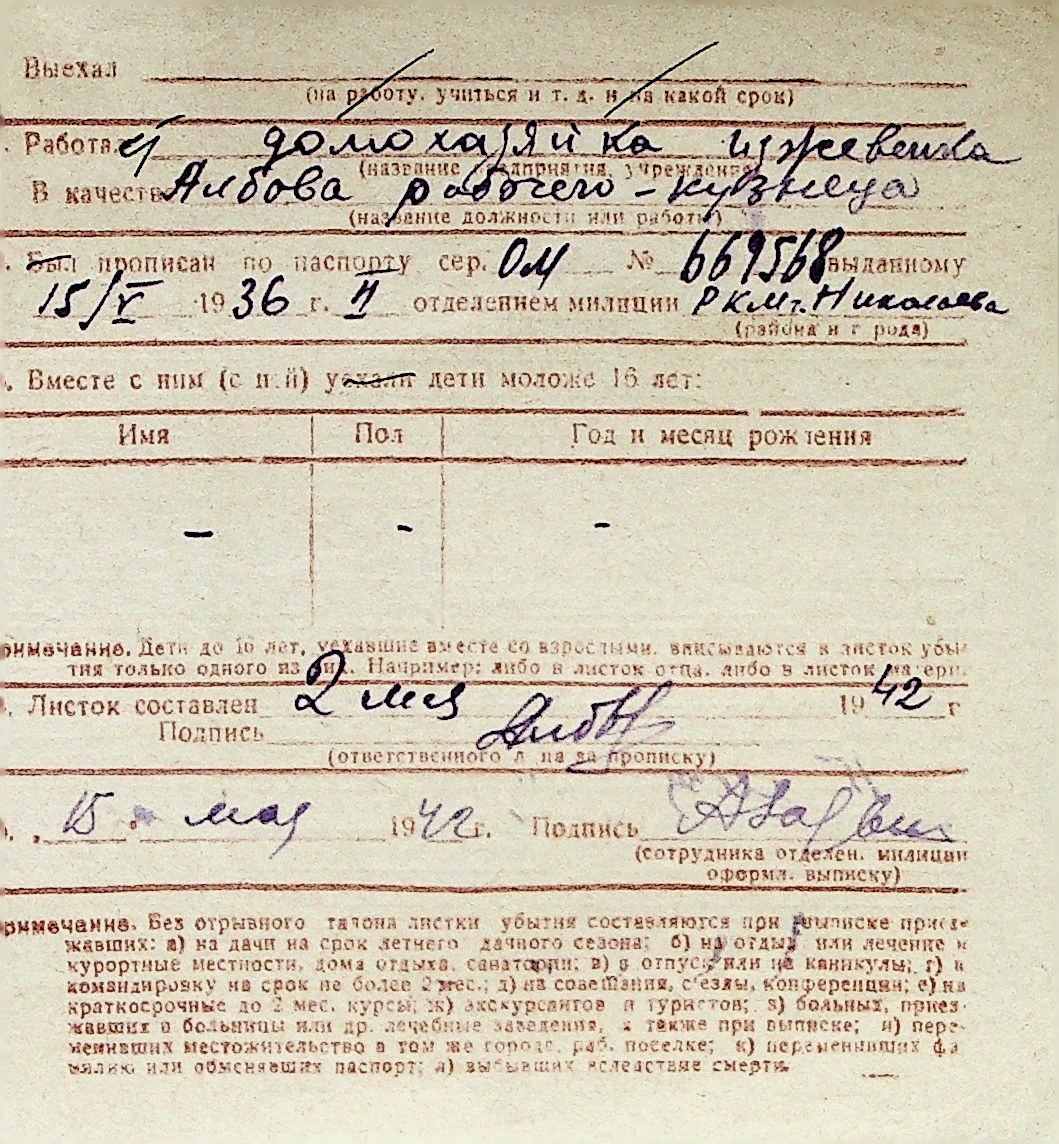 Выехал
(на работу, учиться и т. д. и на какой срок)
Работа домохазяйка иждевенка
(название предприятия, учреждения)
В качеств Албова рабочего-кузнеца
(название должности или работы)
Был прописан по паспорту сер. ОМ № 669568 выданному
15/V 1936 г. II отделением милиции РКМ г. Николаева
(района и города)
Вместе с ним (с ней) уехали дети моложе 16 лет:
Имя Пол Год и месяц рождения
– - -
римечание. Дети до 16 лет, уехавшие вместе со взрослыми, вписываются в листок убы-
тия только одного из них. Например: либо в листок отца, либо в листок матери.
Листок составлен 2 мая 1942 г
Подпись
(ответственного л на за прописку)
„ 15 " мая 1942 г. Подпись
(сотрудника отделен. милиции
оформл. выписку)
римечание. Без отрывного талона листки убытия составляются при выписке приез-
жавших: а) на дачи на срок летнего дачного сезона; б) на отдых или лечение в
курортные местности, дома отдыха, санатории; в) в отпуск или на каникулы; г) в
командировку на срок не более 2 мес.; д) на совещания, с'езды, конференции; е) на
краткосрочные до 2 мес. курсы; ж) экскурсантов и туристов; з) больных, приез-
жавших в больницы или др. лечебные заведения, а также при выписке; и) пере-
менивших местожительство в том же городе, раб. поселке; к) переменивших фа
милию или обменявших паспорт; л) выбывших вследствие смерти.